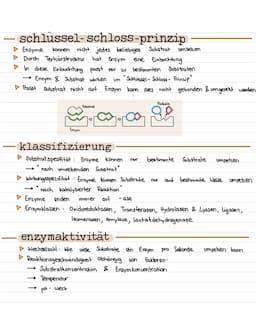 schlüssel-schloss-prinzip
Enzyme können nicht jedes beliebige Substrat umsetzen
Durch Tertiärstruktur hat Enzym eine Einbuchtung
In diese Einbuchtung passt nur zu bestimmten Substraten
→ Enzym & Substrat wirken im "Schlüssel-Schloss-Prinzip"
Passt Substrat nicht auf Enzym kann dies nicht gebunden & umgesetzt werden
Substrat
Produkte
Enzym
klassifizierung
Substratspezifität: Enzyme können nur bestimmte Substrate umsetzen
→ "nach umsetzenden Substrat"
Wirkungsspezifität: Enzyme können Substrate nur auf bestimmte Weise umsetzen
→ "nach katalysierter Reaktion"
Enzyme enden immer auf -ase
Enzymklassen: Oxidoreduktasen, Transferasen, Hydrolasen & Lyasen, Ligasen,
Isomerasen, Amylase, Lactatdehydrogenase
enzymaktivität
Wechselzahl: Wie viele Substrate ein Enzym pro Sekunde umsetzen kann
Reaktionsgeschwindigkeit abhängig von Faktoren:
→ Substratkonzentration & Enzymkonzentration
→ Temperatur
→ pH-Wert